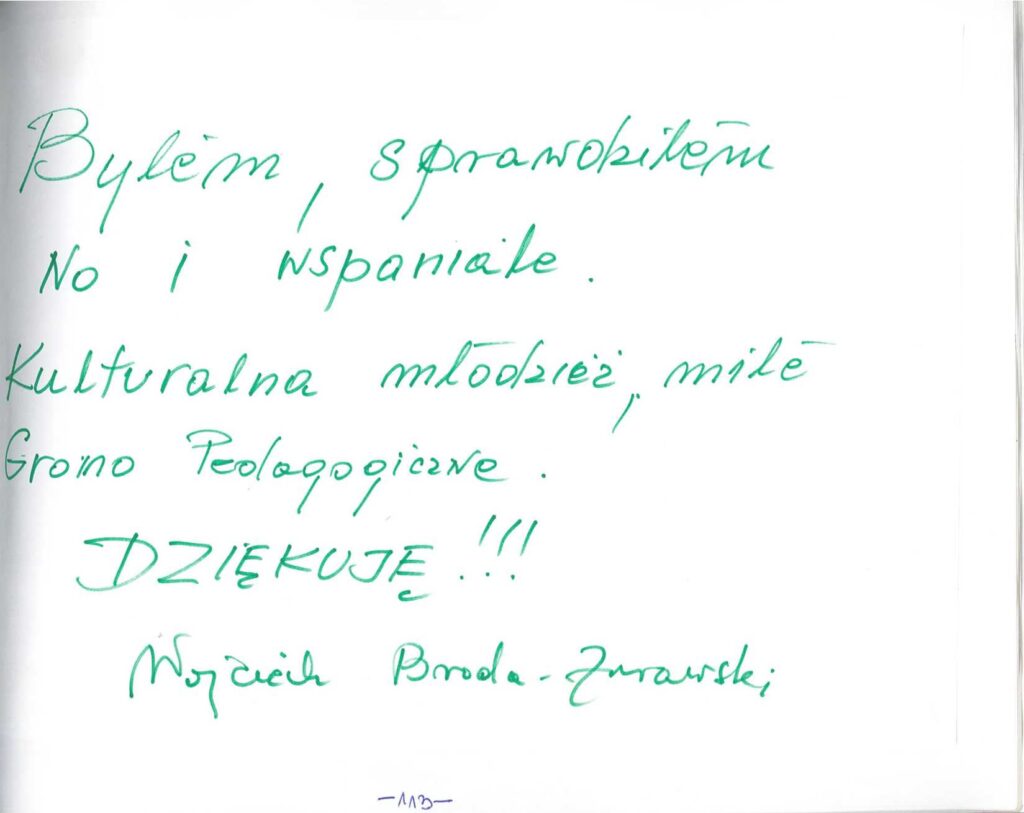 Byłem, sprawdziłem
No i wspaniałe.
Kulturalna młodzież, miłe
Grono Pedagogiczne.
DZIĘKUJĘ!!!
Wojciech Broda-Żurawski
-113-